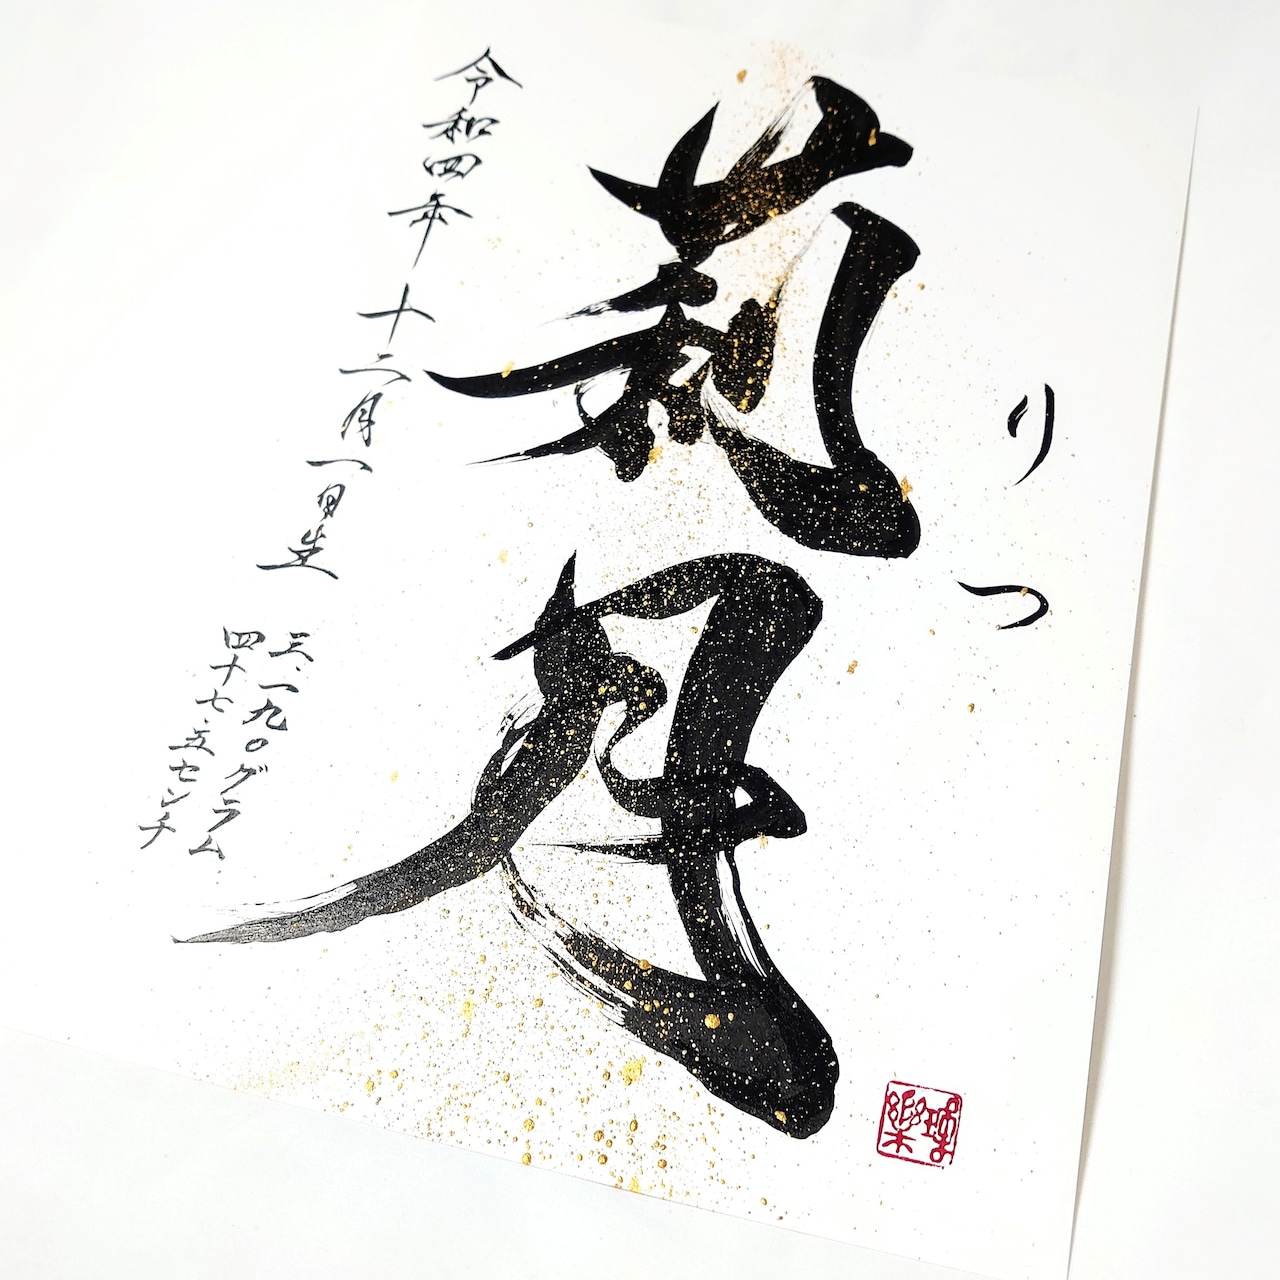 りつ
莉月
令和四年 十二月一日生
三.一九〇グラム
四十七.五センチ